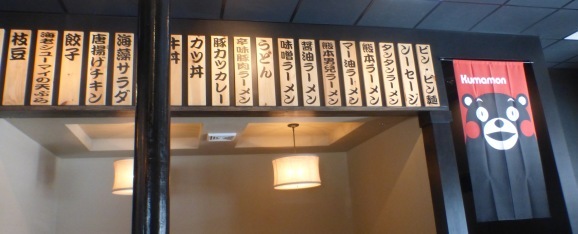 ビン・ビン麺
ソーセージ
タンタンラーメン
熊本ラーメン
マー油ラーメン
熊本男児ラーメン
醤油ラーメン
味噌ラーメン
うどん
辛味豚肉ラーメン
豚カツカレー
カツ丼
牛丼
海藻サラダ
唐揚げチキン
餃子
海老シューマイの天ぷら
枝豆
Kumamon